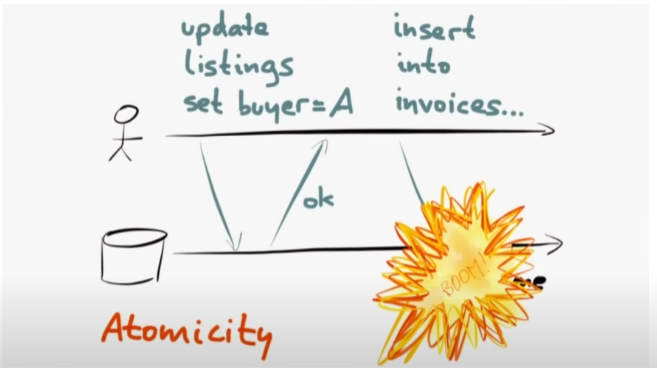 update
listings
set buyer=A
insert
into
invoices...
ok
BOOM!
Atomicity